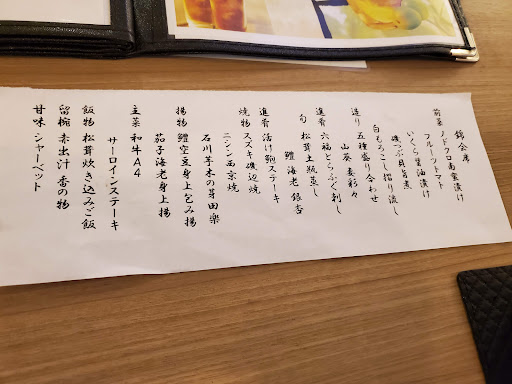 錦会席
前菜 ノドクロ南蛮漬け
フルーツトマト
いくら醤油漬け
磯つぶ貝旨煮
白もろこし摺り流し
造り 五種盛り合わせ
山葵 妻彩々
進肴 六福とらふぐ刺し
旬 松茸土瓶蒸し
鱧 海老 銀杏
進肴 活け鮑ステーキ
焼物 スズキ磯辺焼
ニシン西京焼
石川芋木の芽田楽
揚物 鱧空豆身上包み揚
茄子海老身上揚
主菜 和牛A4
サーロインステーキ
飯物 松茸炊き込みご飯
留椀 赤出汁 香の物
甘味 シャーベット